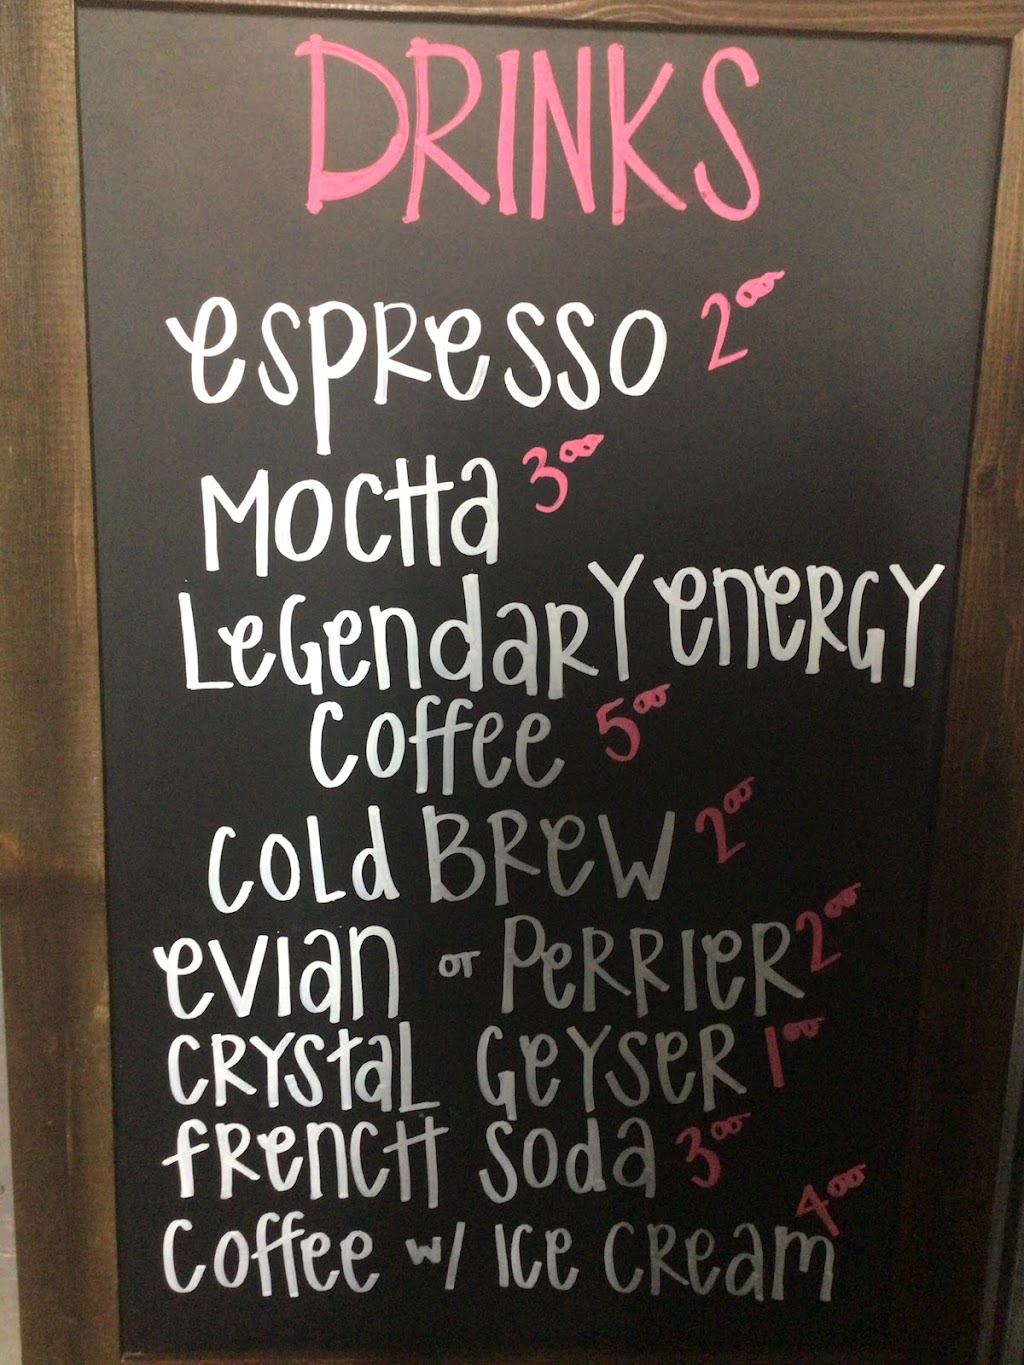 DRINKS
espresso 2.00
MOCHA 3.00
LeGendarY eneRGY
Coffee 5.00
Cold BRew 2.00
evian or PeRRIeR 2.00
CRYStaL GeYSeR 1.00
fRenCH Soda 3.00
Coffee w/ ICe CReam 4.00